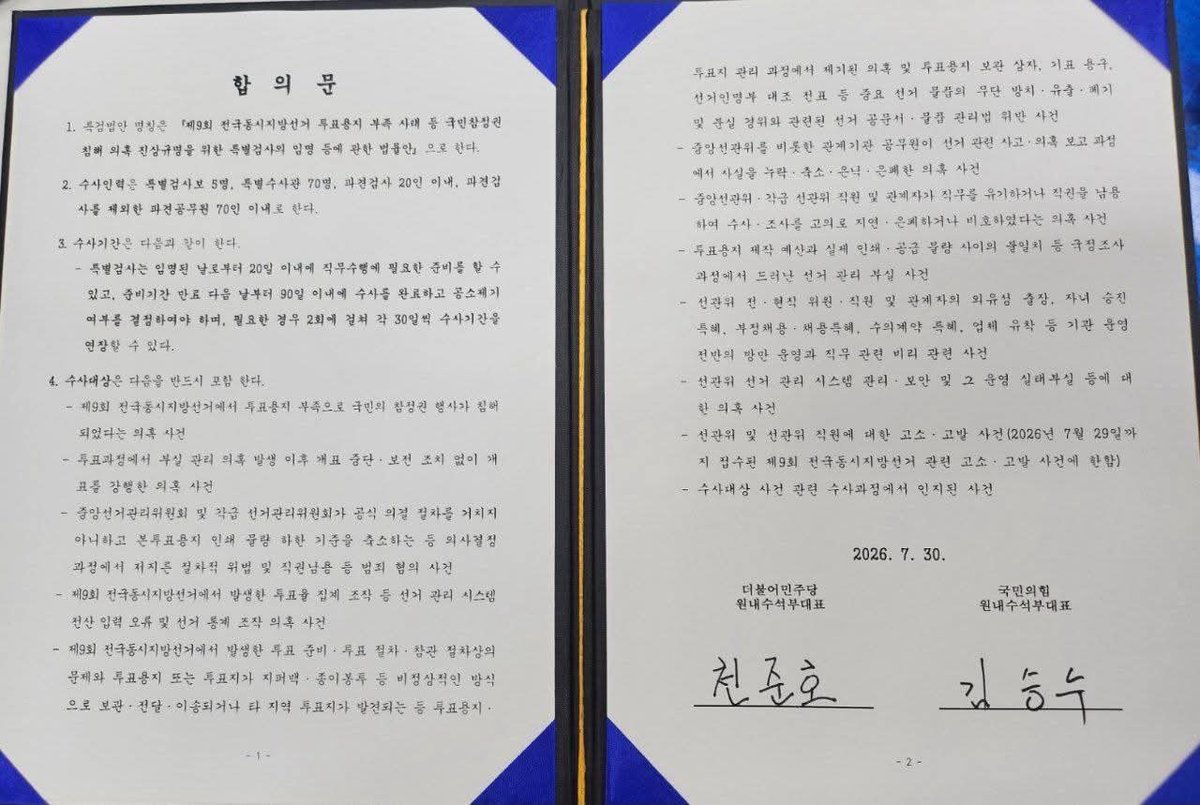 합 의 문
1. 특검법안 명칭은 『제9회 전국동시지방선거 투표용지 부족 사태 등 국민참정권
침해 의혹 진상규명을 위한 특별검사의 임명 등에 관한 법률안』으로 한다.
2. 수사인력은 특별검사보 5명, 특별수사관 70명, 파견검사 20인 이내, 파견검
사를 제외한 파견공무원 70인 이내로 한다.
3. 수사기간은 다음과 같이 한다.
- 특별검사는 임명된 날로부터 20일 이내에 직무수행에 필요한 준비를 할 수
있고, 준비기간 만료 다음 날부터 90일 이내에 수사를 완료하고 공소제기
여부를 결정하여야 하며, 필요한 경우 2회에 걸쳐 각 30일씩 수사기간을
연장할 수 있다.
4. 수사대상은 다음을 반드시 포함 한다.
- 제9회 전국동시지방선거에서 투표용지 부족으로 국민의 참정권 행사가 침해
되었다는 의혹 사건
- 투표과정에서 부실 관리 의혹 발생 이후 개표 중단·보전 조치 없이 개
표를 강행한 의혹 사건
- 중앙선거관리위원회 및 각급 선거관리위원회가 공식 의결 절차를 거치지
아니하고 본투표용지 인쇄 물량 하한 기준을 축소하는 등 의사결정
과정에서 저지른 절차적 위법 및 직권남용 등 범죄 혐의 사건
- 제9회 전국동시지방선거에서 발생한 투표율 집계 조작 등 선거 관리 시스템
전산 입력 오류 및 선거 통계 조작 의혹 사건
- 제9회 전국동시지방선거에서 발생한 투표 준비·투표 절차·참관 절차상의
문제와 투표용지 또는 투표지가 지퍼백·종이봉투 등 비정상적인 방식
으로 보관·전달·이송되거나 타 지역 투표지가 발견되는 등 투표용지·
- 1 -
투표지 관리 과정에서 제기된 의혹 및 투표용지 보관 상자, 기표 용구,
선거인명부 대조 전표 등 중요 선거 물품의 무단 방치·유출·폐기
및 분실 경위와 관련된 선거 공문서·물품 관리법 위반 사건
- 중앙선관위를 비롯한 관계기관 공무원이 선거 관련 사고·의혹 보고 과정
에서 사실을 누락·축소·은닉·은폐한 의혹 사건
- 중앙선관위·각급 선관위 직원 및 관계자가 직무를 유기하거나 직권을 남용
하여 수사·조사를 고의로 지연·은폐하거나 비호하였다는 의혹 사건
- 투표용지 제작 예산과 실제 인쇄·공급 물량 사이의 불일치 등 국정조사
과정에서 드러난 선거 관리 부실 사건
- 선관위 전·현직 위원·직원 및 관계자의 외유성 출장, 자녀 승진
특혜, 부정채용·채용특혜, 수의계약 특혜, 업체 유착 등 기관 운영
전반의 방만 운영과 직무 관련 비리 관련 사건
- 선관위 선거 관리 시스템 관리·보안 및 그 운영 실태부실 등에 대
한 의혹 사건
- 선관위 및 선관위 직원에 대한 고소·고발 사건(2026년 7월 29일까
지 접수된 제9회 전국동시지방선거 관련 고소·고발 사건에 한함)
- 수사대상 사건 관련 수사과정에서 인지된 사건
2026. 7. 30.
더불어민주당
원내수석부대표
천준호
국민의힘
원내수석부대표
김승수
- 2 -